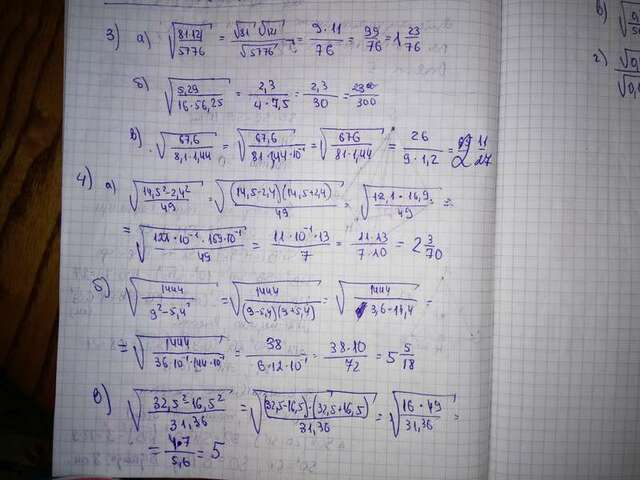 3) а) √(81·121/5776) = √81·√121/√5776 = 9·11/76 = 99/76 = 1 23/76
б) √(5,29/16·56,25) = 2,3/4·7,5 = 2,3/30 = 23/300
в) √(676/81·1,44) = √(676/81·144·10⁻²) = √(676/81·1,44) = 26/9·1,2 =
4) а) √((14,5²-2,4²)/49) = √((14,5-2,4)(14,5+2,4)/49) = √(12,1·16,9/49) =
= √(121·10⁻¹·169·10⁻¹/49) = 11·10⁻¹·13/7 = 11·13/7·10 = 2 3/70
б) √(1444/9²-5,4²) = √(1444/(9-5,4)(9+5,4)) = √(1444/3,6·14,4) =
√(1444/36·10⁻¹·144·10⁻¹) = 38/6·12·10⁻¹ = 38·10/72 = 5 5/18
в) √((32,5²-16,5²)/31,36) = √((32,5-16,5)·(32,5+16,5)/31,36) = √(16·49/31,36) =
= 4·7/5,6 = 5